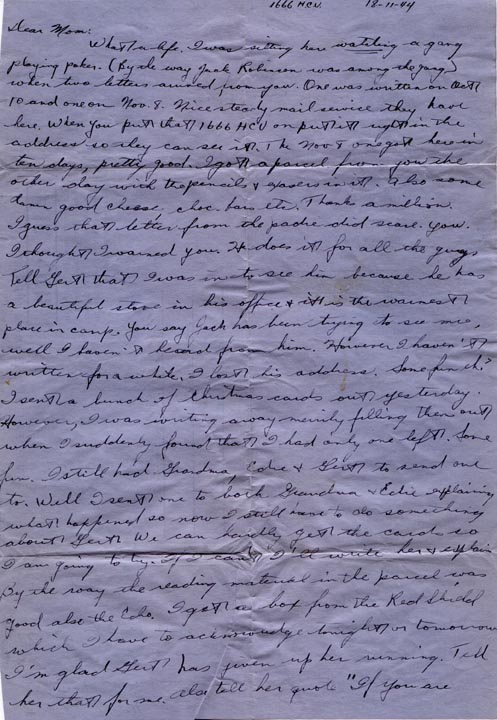 1666 HCU 18-11-44
Dear Mom:
What a life. I was sitting here watching a gang
playing poker. (By the way Jack Robinson was among the gang)
when two letters arrived from you. One was written on Oct
10 and one on Nov. 8. Nice steady mail service they have
here. When you put that 1666 HCU on put it right in the
address so they can see it. The Nov 8 one got here in
ten days, pretty good. I got a parcel from you the
other day with the pencils & erasers in it. Also some
damn good cheese, choc. bars etc. Thanks a million.
I guess that letter from the padre did scare you.
I thought I warned you. He does it for all the guys
Tell Gert that I was in to see him because he has
a beautiful stove in his office & it is the warmest
place in camp. You say Jack has been trying to see me,
well I haven't heard from him. However I haven't
written for a while. I lost his address. Some fun eh?
I sent a bunch of Christmas cards out yesterday.
However, I was writing away merrily filling them out
when I suddenly found that I had only one left. Some
fun. I still had Grandma, Edie & Gert to send one
to. Well I sent one to both Grandma & Edie explaining
what happened so now I still have to do something
about Gert. We can hardly get the cards so
I am going to try. If I can't I'll write her & explain
By the way the reading material in the parcel was
good also the Edo. I got a box from the Red Shield
which I have to acknowledge tonight or tomorrow
I'm glad Gert has given up her running. Tell
her that for me. Also tell her quote "If you are